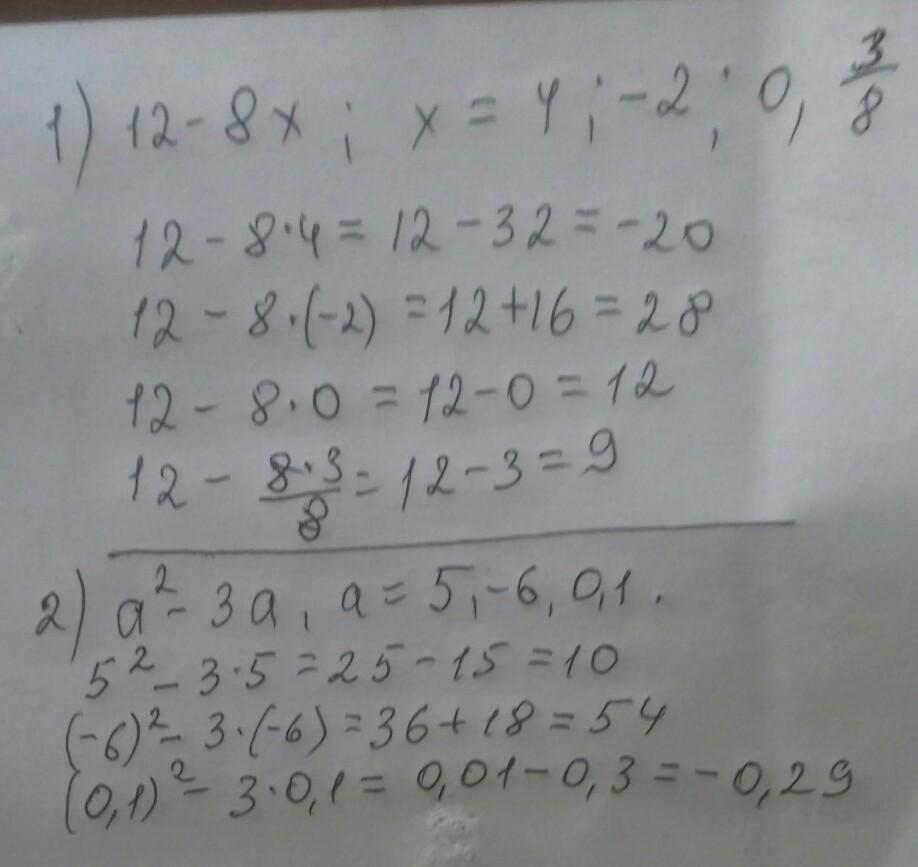 1) 12 - 8x ; x = 4 ; -2 ; 0, 3/8
12 - 8·4 = 12 - 32 = -20
12 - 8·(-2) = 12+16 = 28
12 - 8·0 = 12-0 = 12
12 - 8·3/8 = 12-3 = 9
2) a² - 3a, a = 5, -6, 0,1.
5² - 3·5 = 25 - 15 = 10
(-6)² - 3·(-6) = 36+18 = 54
(0,1)² - 3·0,1 = 0,01 - 0,3 = -0,29